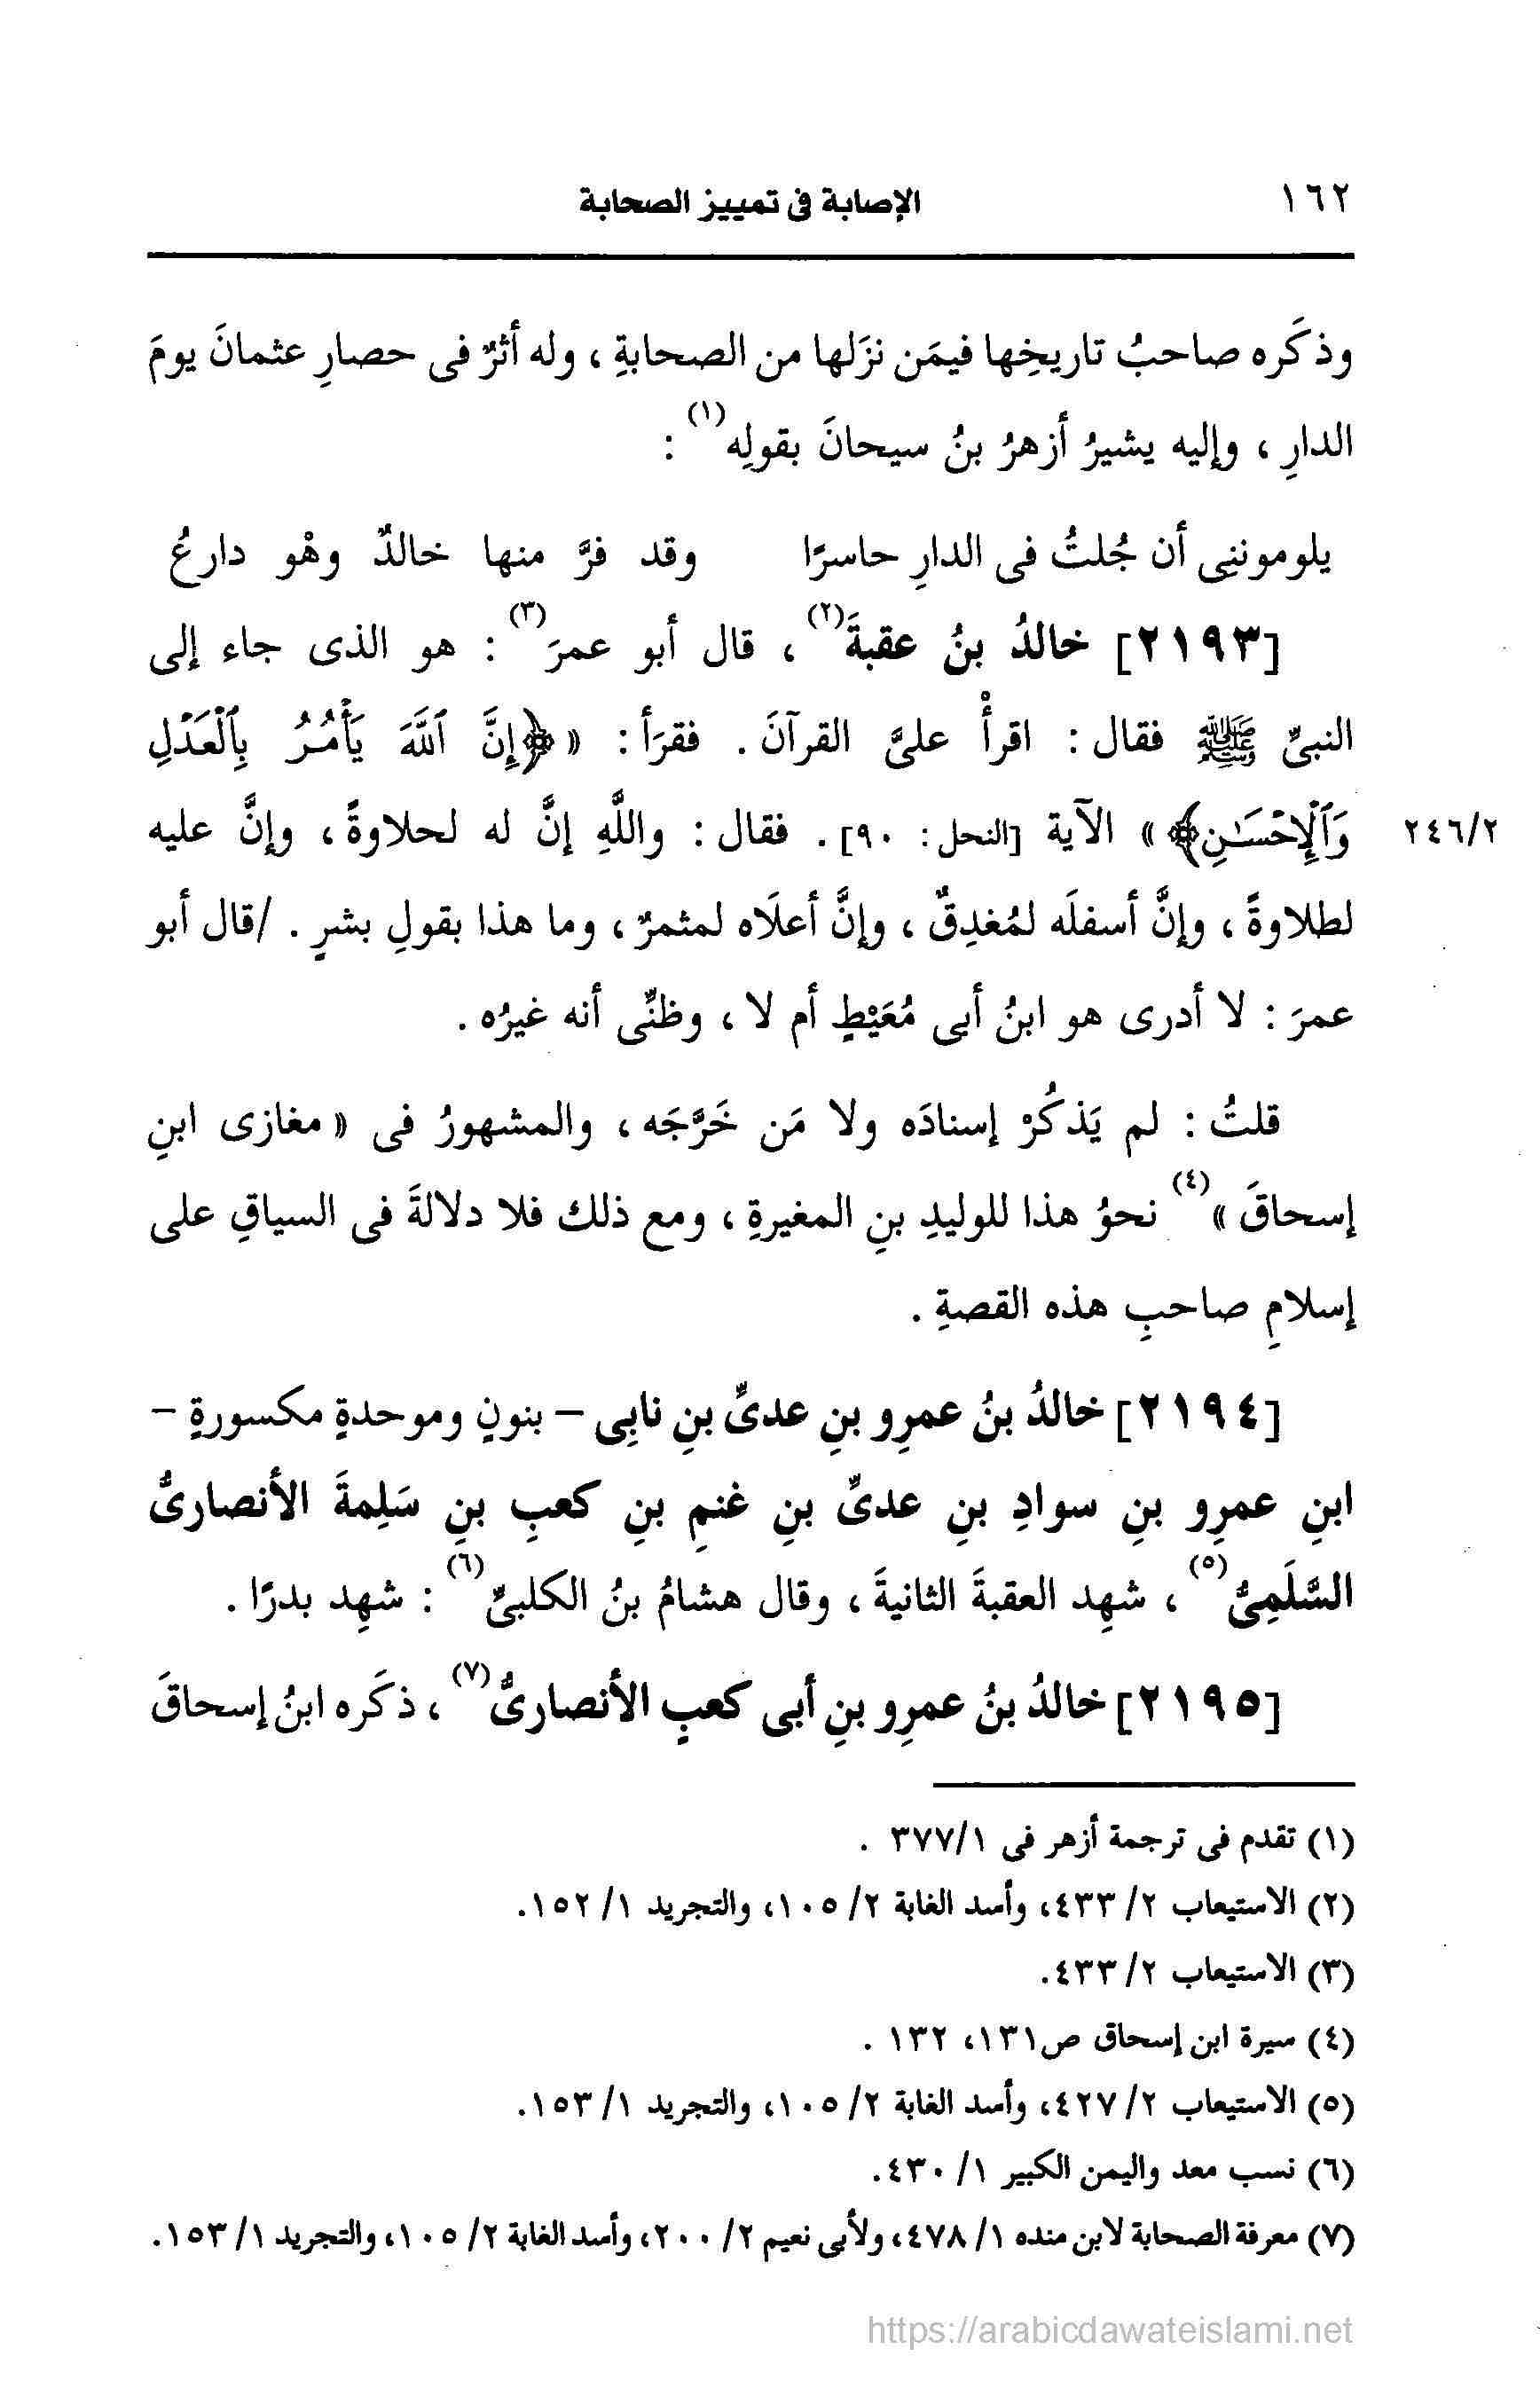 ١٦٢
الإصابة فى تمييز الصحابة
وذكَره صاحبُ تاريخِها فيمَن نزَلها من الصحابةِ ، وله أثرٌ فى حصارِ عثمانَ يومَ
الدارِ ، وإليه يشيرُ أزهرُ بنُ سيحانَ بقولِه(١) :
يلوموننِى أن جُلتُ فى الدارِ حاسرًا وقد فرَّ منها خالدٌ وهْو دارعُ
[٢١٩٣] خالدُ بنُ عقبةَ(٢) ، قال أبو عمرَ(٣) : هو الذى جاء إلى
النبىِّ ﷺ فقال : اقرأْ علىَّ القرآنَ . فقرَأ : « ﴿إِنَّ ٱللَّهَ يَأْمُرُ بِٱلْعَدْلِ
وَٱلْإِحْسَـٰنِ﴾ » الآية [النحل : ٩٠] . فقال : واللَّهِ إنَّ له لحلاوةً ، وإنَّ عليه
٢٤٦/٢
لطلاوةً ، وإنَّ أسفلَه لمُغدِقٌ ، وإنَّ أعلَاه لمثمرٌ ، وما هذا بقولِ بشرٍ . /قال أبو
عمرَ : لا أدرى هو ابنُ أبى مُعَيْطٍ أم لا ، وظنِّى أنه غيرُه .
قلتُ : لم يَذكُرْ إسنادَه ولا مَن خَرَّجَه ، والمشهورُ فى « مغازى ابنِ
إسحاقَ »(٤) نحوُ هذا للوليدِ بنِ المغيرةِ ، ومع ذلك فلا دلالةَ فى السياقِ على
إسلامِ صاحبِ هذه القصةِ .
[٢١٩٤] خالدُ بنُ عمرِو بنِ عدىِّ بنِ نابِى – بنونٍ وموحدةٍ مكسورةٍ –
ابنِ عمرِو بنِ سوادِ بنِ عدىِّ بنِ غنمِ بنِ كعبِ بنِ سَلِمةَ الأنصارىُّ
السَّلَمِىُّ(٥) ، شهِد العقبةَ الثانيةَ ، وقال هشامُ بنُ الكلبىِّ(٦) : شهِد بدرًا .
[٢١٩٥] خالدُ بنُ عمرِو بنِ أبى كعبٍ الأنصارىُّ(٧) ، ذكَره ابنُ إسحاقَ
(١) تقدم فى ترجمة أزهر فى ٣٧٧/١ .
(٢) الاستيعاب ٢/ ٤٣٣، وأسد الغابة ٢/ ١٠٥، والتجريد ١/ ١٥٢.
(٣) الاستيعاب ٢/ ٤٣٣.
(٤) سيرة ابن إسحاق ص١٣١، ١٣٢ .
(٥) الاستيعاب ٢/ ٤٢٧، وأسد الغابة ٢/ ١٠٥، والتجريد ١/ ١٥٣.
(٦) نسب معد واليمن الكبير ١/ ٤٣٠.
(٧) معرفة الصحابة لابن منده ١/ ٤٧٨، ولأبى نعيم ٢/ ٢٠٠، وأسد الغابة ٢/ ١٠٥، والتجريد ١/ ١٥٣.
https://arabicdawateislami.net